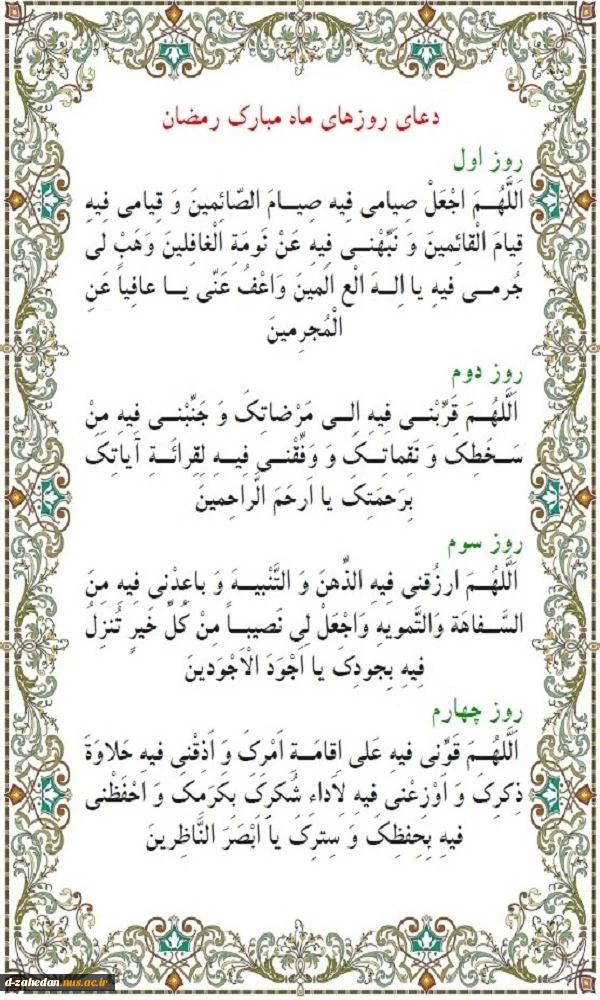 دعای روزهای ماه مبارک رمضان
روز اول
اَللَّهُـمَ اجْعَلْ صِیامی فیه صِیـامَ الصّائِمینَ وَ قِیامی فِیهِ
قِیامَ الْقائِمینَ وَ نَبِّهْنـی فِیهِ عَنْ نَومَةِ الْغافِلینَ وَهَبْ لی
جُرمـی فیهِ یا اِلـهَ الْع المینَ وَاعْفُ عَنّی یـا عافِیاً عَنِ
الْمُجرِمینَ
روز دوم
اَللَّهُـمَ قَرِّبْنـی فِیهِ الـی مَرْضاتِکَ وَ جَنِّبْنـی فیهِ مِنْ
سَـخَطِکَ وَ نَقِماتـکَ وَ وَفِّقْنـی فیـهِ لِقِرائَـةِ آیاتِکَ
بِرَحمَتِکَ یا اَرحَمَ الرَّاحِمینَ
روز سوم
اَللَّهُـمَ ارزُقنی فِیهِ الذِّهنَ وَ التَّنْبیـهَ وَ باعِدْنی فیهِ مِنَ
السَّـفاهَة وَالتَّمویهِ وَاجْعَلْ لِی نَصیبـاً مِنْ کُلِّ خَیرٍ تُنزِلُ
فِیهِ بِجودِکَ یا اَجْوَدَ الْاَجْوَدینَ
روز چهارم
اَللَّهُـمَ قَوِّنی فیهِ عَلی اِقامَـةِ اَمْرِکَ وَ اَذِقْنی فیهِ حَلاوَةَ
ذِکرِکَ وَ اَوْزِعْنی فِیهِ لِاَداءِ شُکرِکَ بِکَرَمِکَ وَ احْفَظْنی
فیهِ بِحِفظِکَ وَ سِترِکَ یا اَبْصَرَ النَّاظِرینَ
d-zahedan.nus.ac.ir